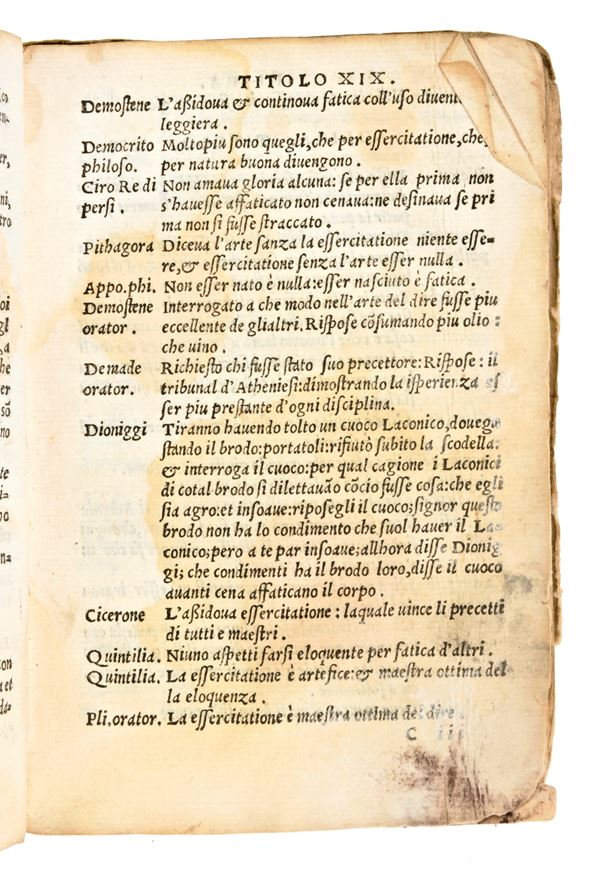 TITOLO XIX.
Demostene L'aßidoua & continoua fatica coll'uso diuent
leggiera.
Democrito Moltopiu sono quegli, che per essercitatione, che
philoso. per natura buona diuengono.
Ciro Re di Non amaua gloria alcuna: se per ella prima non
persi. s'hauesse affaticato non cenaua: ne desinaua se pri
ma non si fusse straccato.
Pithagora Diceua l'arte sanza la essercitatione niente esse-
re, & essercitatione senza l'arte esser nulla.
Appo. phi. Non esser nato è nulla: esser nasciuto è fatica.
Demostene Interrogato a che modo nell'arte del dire fusse piu
orator. eccellente de glialtri. Rispose cõsumando piu olio:
che uino.
Demade Richiesto chi fusse stato suo precettore: Rispose: il
orator. tribunal d'Atheniesi: dimostrando la isperienza es
ser piu prestante d'ogni disciplina.
Dioniggi Tiranno hauendo tolto un cuoco Laconico, doue gu
stando il brodo: portatoli: rifiutò subito la scodella:
& interroga il cuoco: per qual cagione i Laconici
di cotal brodo si dilettauão cõcio fusse cosa: che egli
sia agro: et insoaue: riposegli il cuoco; signor questo
brodo non ha lo condimento che suol hauer il La=
conico; pero a te par insoaue; allhora disse Dionig
gi; che condimenti ha il brodo loro, disse il cuoco
auanti cena affaticano il corpo.
Cicerone L'aßidoua essercitatione: laquale uince li precetti
di tutti e maestri.
Quintilia. Niuno aspetti farsi eloquente per fatica d'altri.
Quintilia. La essercitatione è artefice: & maestra ottima del
la eloquenza.
Pli. orator. La essercitatione è maestra ottima del dire
C ii